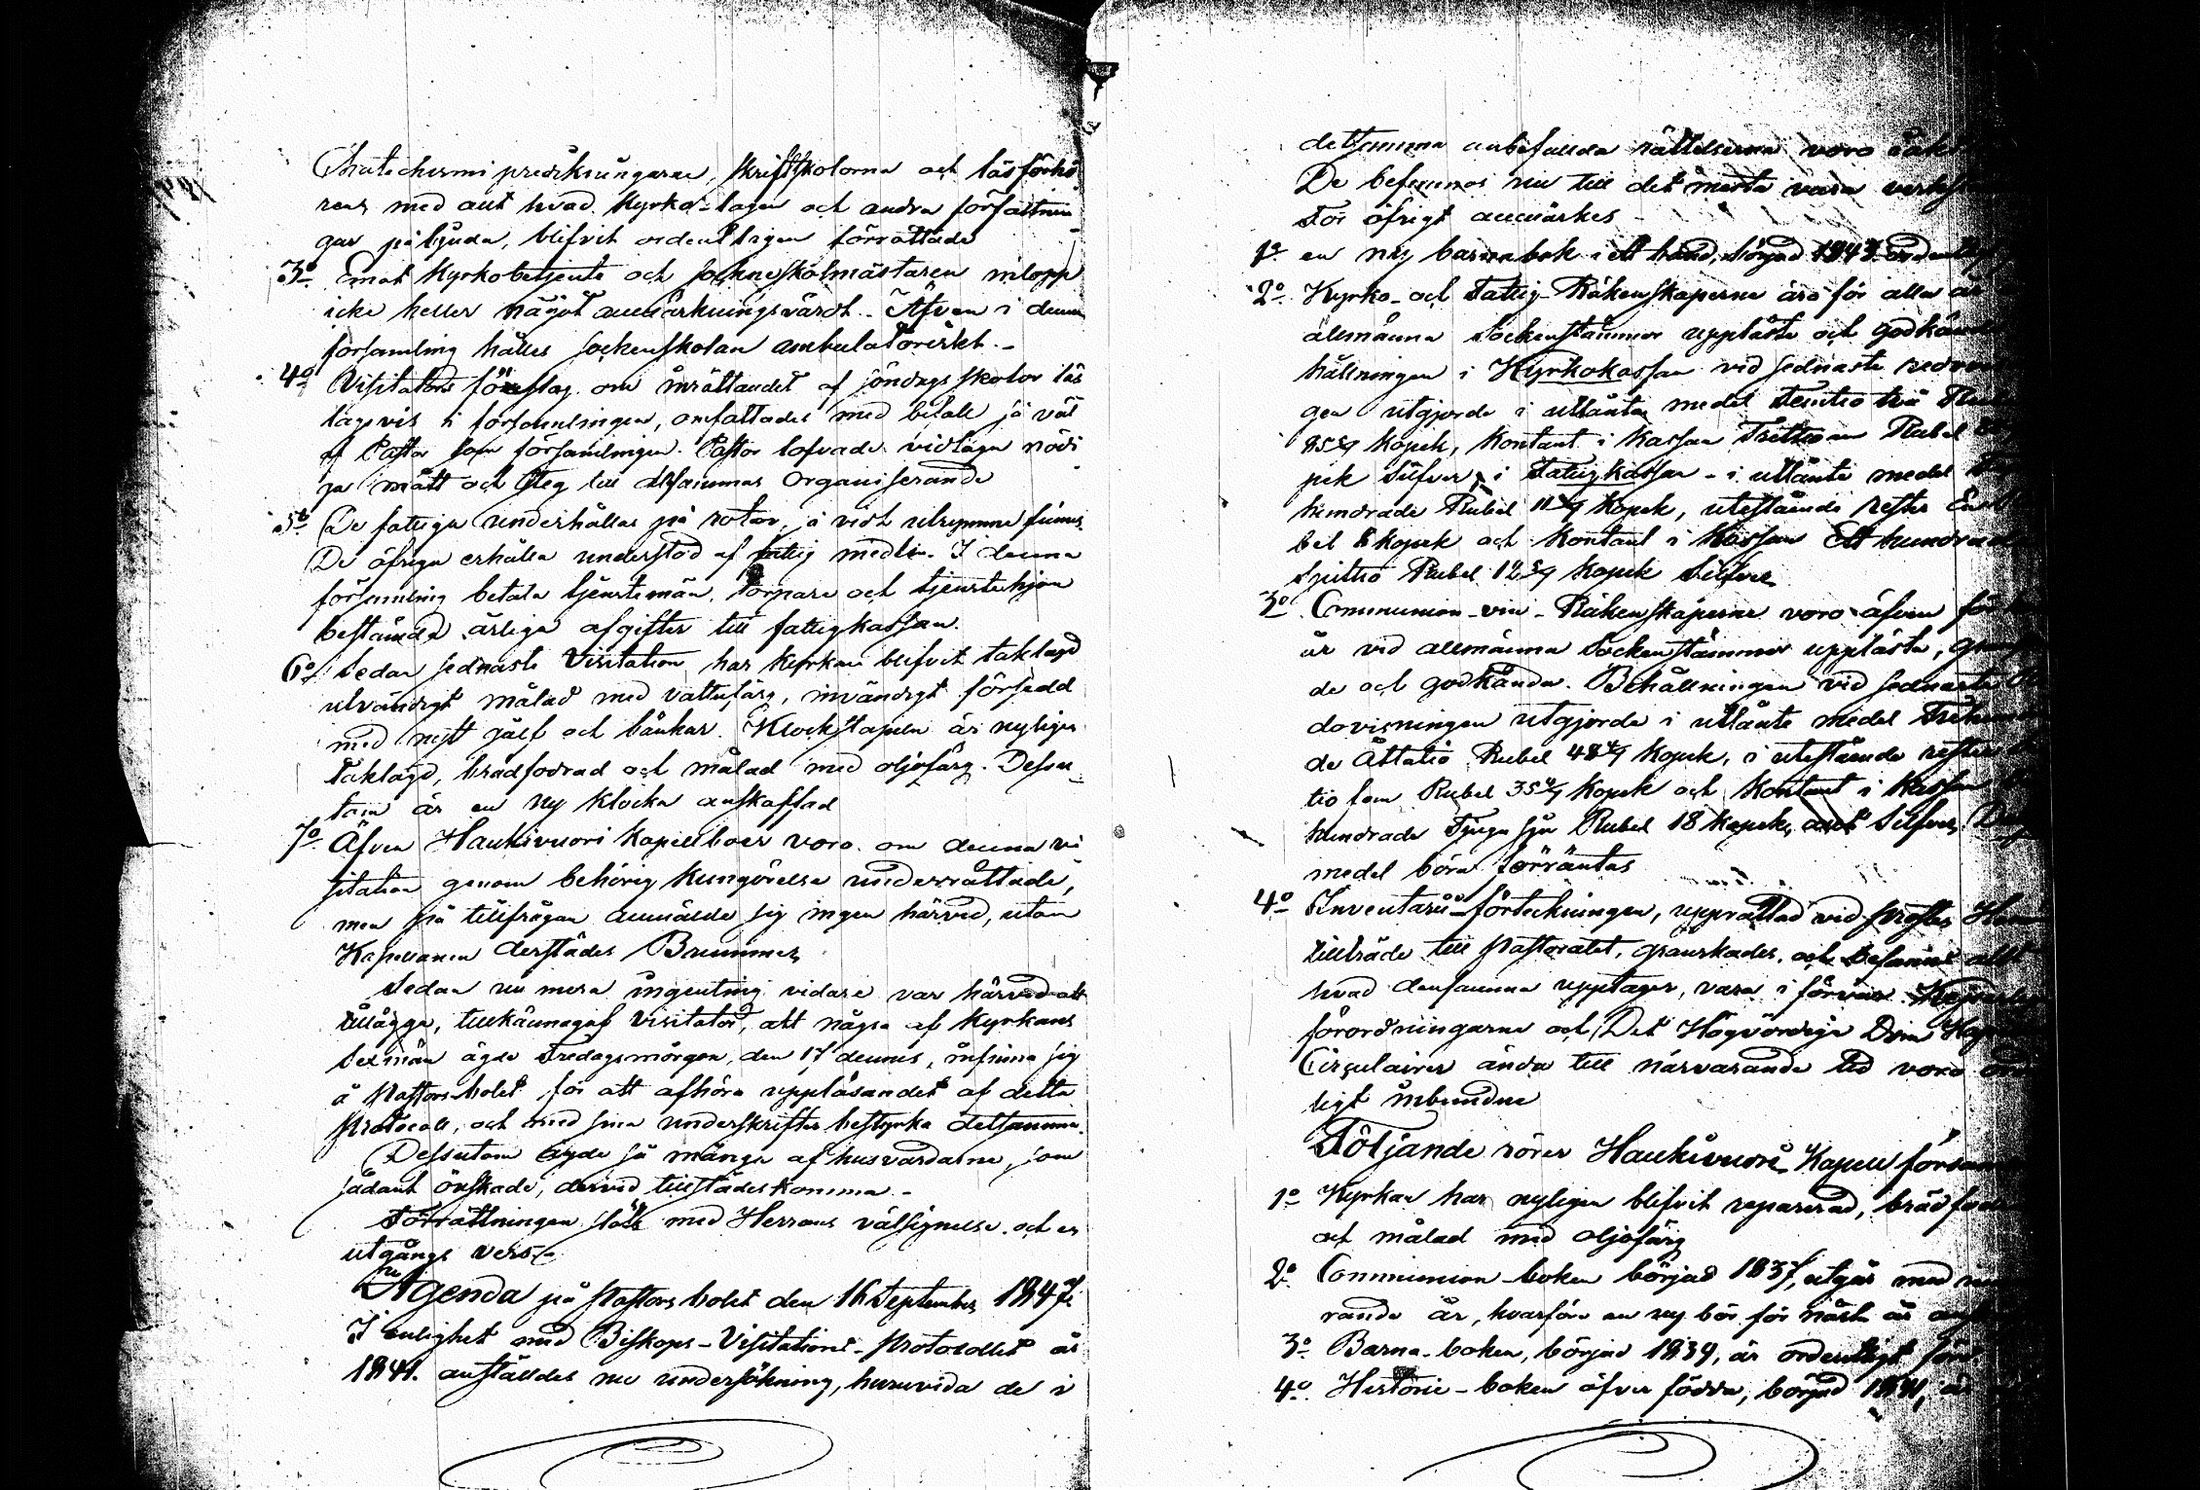 Chatechermi predikningarne, skriftskolorna och läsförhö
rens med allt hvad Kyrko-lagen och andra författnin
gar påbjuda, blifvit ordentligen förrättade
3o Emot Kyrkobetjente och Sockneskolmästaren inlopp
icke heller något anmärkningsvärdt. Äfven i denna
församling hålles Sockenskolan ambulatoriskt. -
4o Visitators förslag om inrättandet af söndags skolorläs
lagsvis i församlingen, omfattades med bifall så väl
af Pastor som församlingen. Pastor lofvade vidtaga nödi
ga mått och steg till desammas Organiserande
5o De fattiga underhållas på rotar, så vidt utrymme finnes.
De öfriga erhålla understöd af fattig medlen. I denna
församling betala tjenstemän, torpare och tjenstehjon
bestämda årliga afgifter till fattigkassan.
6o Sedan sednaste Visitation har Kyrkan blifvit taklagd
utvändigt målad med vattufärg, invändigt försedd
med nytt golf och bänkar. Klockstapeln är nyligen
taklagd, brädfodrad och målad med oljefärg. Dessu
tom är en ny klocka anskaffad
7o Äfven Haukivuori Kapellboer voro om denna vi
sitation genom behörig kungörelse underrättade,
men på tillfrågan anmälde sig ingen härvid, utom
Kapellanen derstädes Brummer
Sedan nu mera ingenting vidare var härvid att
tillägga, tillkännagaf Visitator, att några af Kyrkans
Sexmän ägde Fredagsmorgon, den 17 dennes, infinna sig
å Pastors bolet för att afhöra uppläsandet af detta
Protocoll, och med sina underskrifter bestyrka detsamma.
Dessutom ägde så många af husvärdarne, som
sådant önskade, dervid tillstädeskomma. -
Förrättningen slöts med Herrans välsignelse och en
utgångs vers. -
Agenda på Pastors bolet den 16 September 1847.
I enlighet med Biskops-Visitations-Protocollet år
1841. anställdes nu undersökning, huruvida de i
detsamma anbefallda rättelserna voro
De befunnos nu till det mesta vara
För öfrigt anmärktes
1o en ny barnabok i ett band, börjad 1847
2o Kyrko- och Fattig-Räkenskaperna äro för alla år
allmänna Sockenstämmor upplästa och
hållningen i Kyrkokassan vid sednaste
gen utgjorde i utlånta medel Femtio två
kopek, Kontant i Kassan Rubel
pek Silfver, i Fattigkassan - i utlånta medel
hundrade Rubel kopek, utestående rester
bel kopek och Kontant i Kassan Ett hundrade
Rubel kopek Silfver
3o Communion-vin-Räkenskaperne voro äfven för
år vid allmänna Sockenstämmor upplästa,
de och godkända. Behållningen vid sednaste
dovisningen utgjorde i utlånte medel
de Åttatio Rubel kopek, i utestående rester
tio fem Rubel kopek och Kontant i Kassan
hundrade Tjugu sju Rubel 18 kopek, allt Silfver.
medel böra förräntas
4o Inventarii-förteckningen, upprättad vid
tillträde till Pastoratet, granskades, och befanns allt
hvad densamma upptager, vara i förvar.
förordningarne och Det Högvördiga Dom
Circulairer ända till närvarande tid voro
ligt inbundne
Följande rörer Haukivuori Kapell
1o Kyrkan har nyligen blifvit reparerad,
och målad med oljefärg
2o Communion-boken börjad 1837, utgår med
rande år, hvarföre en ny bör för näst år
3o Barna-boken, börjad 1839, är ordentligt
4o Historie-boken öfver födda, börjad